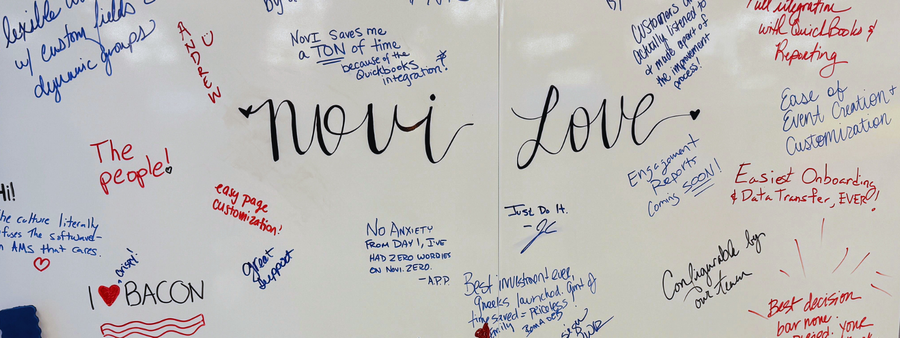 w/ custom fields &
dynamic groups
ANDREW
NovI Saves me
a TON of time
because of the
Quickbooks
integration!
Customers are
actually listened to
& made a part of
the improvement
process!
Full integration
with QuickBooks &
Reporting
Ease of
Event Creation &
Customization
novi Love
The
people!
easy page
customization!
Engagement
Reports
Coming SOON!
Easiest Onboarding
& Data Transfer, EVER!
Hi!
The culture literally
AMS that cares.
Great
Support
No Anxiety
From Day 1, I've
had zero worries
on Novi. Zero.
-A.P.P.
Just Do It.
- JC
Configurable by
our team
I ♥ BACON
Best investment ever,
time saved = priceless
Best decision
bar none.